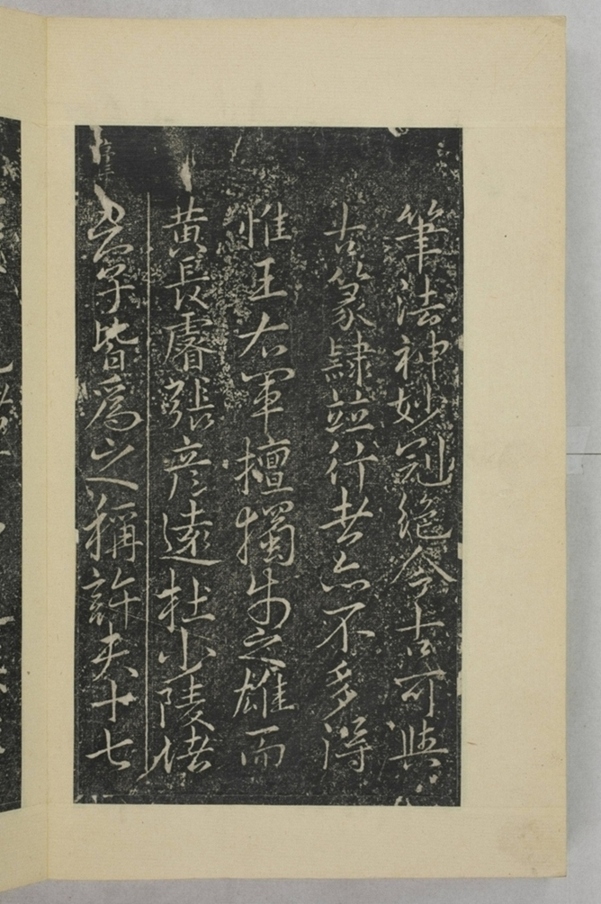 筆法神妙冠絶今古可與
古篆隷並行者亦不多得
惟王右軍擅獨步之雄而
黄長睿張彦遠杜少陵諸
君子皆爲之稱許夫十七